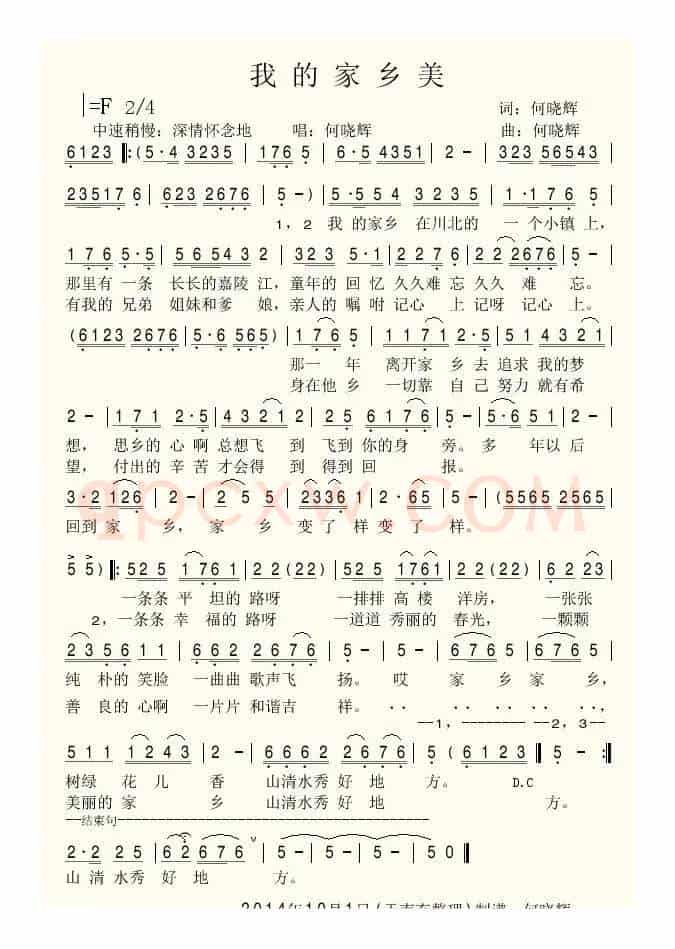 我的家乡美
1=F 2/4 词：何晓辉
中速稍慢：深情怀念地 唱：何晓辉 曲：何晓辉
6123 ‖:(5·4 3235 | 176 5 | 6·5 4351 | 2 - | 323 56543 |
23517 6 | 623 2676 | 5 -) | 5·5 54 323 5 | 1·1 7 6 5 |
1，2 我的家乡 在川北的 一个小镇上，
1 7 6 5·5 | 5 6 543 | 2 323 5·1 | 2272 6 | 2 2 2676 | 5 - |
那里有一条 长长的嘉陵江，童年的回忆久久难忘久久 难 忘。
有我的兄弟 姐妹和爹 娘，亲人的嘱咐记心 上记呀记心上。
(6123 2676 | 5·6 565) | 1 7 6 5 | 1 171 2·5 | 51 4 321 |
那一 年 离开家 乡去追求我的梦
身在他乡 一切靠 自己努力就有希
2 - | 171 2·5 | 4 3212 | 2 25 6176 | 5 - | 5·6 51 | 2 - |
想， 思乡的心啊总想飞 到 飞到你的身 旁。多 年以后
望，付出的辛苦才会得 到 得到回 报。
3·2 126 | 5 - | 2 5 5 | 2336 1 | 2·65 | 5 - | (5565 2565 |
qpcxw.COM
回到家 乡，家 乡 变了样变了样。
5 5) ‖: 525 1 761 | 2 2(22) | 525 1761 | 2 2(22) | 6 2 23 |
一条条平 坦的路呀 一排排高楼 洋房，一张张
2，一条条幸 福的路呀 一道道秀丽的 春光，一颗颗
2 35 61 | 662 2676 | 5 - | 5 - | 6765 | 6765 |
纯 朴的笑脸 一曲曲歌声飞 扬。哎 家 乡家 乡，
善 良的心啊 一片片和谐吉 祥。·· ·· ·· ··，
--1，-------- --2，3--
511 | 1243 | 2 - | 6662 2676 | 5 (6123 ‖ 5 - :‖
树绿花儿 香 山清水秀好地 方。 D.C
美丽的家 乡 山清水秀好地 方。
--结束句--------------------------------
2·2 25 | 62 676 v | 5 - | 5 - | 50 ‖
山清水秀 好 地 方。